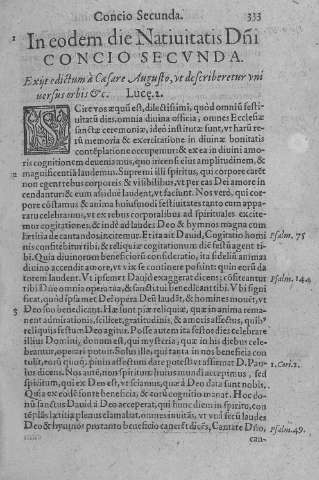 Concio Secunda. 333
1 In eodem die Natiuitatis Dñi
CONCIO SECVNDA.
Exijt edictum à Cæsare Augusto, vt describeretur vni
uersus orbis &c. Lucę.2.
SCire vos æquũ est, dilectissimi, quòd omniũ festi-
uitatũ dies, omnia diuina officia, omnes Ecclesiæ
sanctæ ceremoniæ, ideò institutæ sunt, vt harũ re-
rũ memoria & exercitatione in diuinæ bonitatis
contẽplatione occupemur: & ex ea in diuini amo-
ris cognitionem deueniamus, quo incensi eius amplitudinem, &
2 magnificentiã laudemus. Supremi illi spiritus, qui corpore carẽt
non egent rebus corporeis & visibilibus, vt per eas Dei amore in
cendantur: & eum assiduè laudent, vt faciunt. Nos verò, qui cor-
pore cõstamus & anima huiusmodi festiuitates tanto cum appa-
ratu celebramus, vt ex rebus corporalibus ad spirituales excite-
mur cogitationes, & inde ad laudes Deo & hymnos magna cum
lætitia decantandos incitemur. Et ita ait Dauid, Cogitatio homi Psalm. 75
nis confitebitur tibi, & reliquiæ cogitationum diẽ festũ agent ti-
bi. Quia diuinorum beneficiorũ consideratio, ita fidelium animas
diuino accendit amore, vt vix se continere possint quin eorũ da-
torem laudent. Vt ipsemet Dauid exaggerat dicens: cõfiteantur Psalm. 144
tibi Dñe omnia opera tua, & sancti tui benedicant tibi. Vbi signi
ficat, quòd ipsa met Dei opera Deũ laudãt, & homines mouẽt, vt
3 Deo suo benedicant. Hæ sunt piæ reliquiæ, quæ in anima rema-
nent admirationis, scilicet, gratitudinis, & amoris affectus, quib9
reliquijs festum Deo agitur. Posse autem ita festos dies celebrare
illius Domini, donum est, qui mysteria, quæ in his diebus cele-
brantur, operari potuit. Solus ille, qui tanta in nos beneficia con
tulit, rorẽ quoq; pium affectum dare potest vt affirmat D. Pau- 1. Cori. 2.
lus dicens. Nos autẽ, non spiritum huius mundi accepimus, sed
spiritum, qui ex Deo est, vt sciamus, quæ à Deo data sunt nobis.
Quia ex eodẽ fonte beneficia, & eorũ cognitio manat. Hoc do-
nũ sanctus Dauid à Deo acceperat, qui hunc diem in spiritu, con
tẽplãs lætitia plenus clamabat, omnes inuitãs, vt vnà secũ laudes
Deo & hymnos pro tanto beneficio canerẽt dicẽs, Cantate Dño, Psalm. 49.
can-